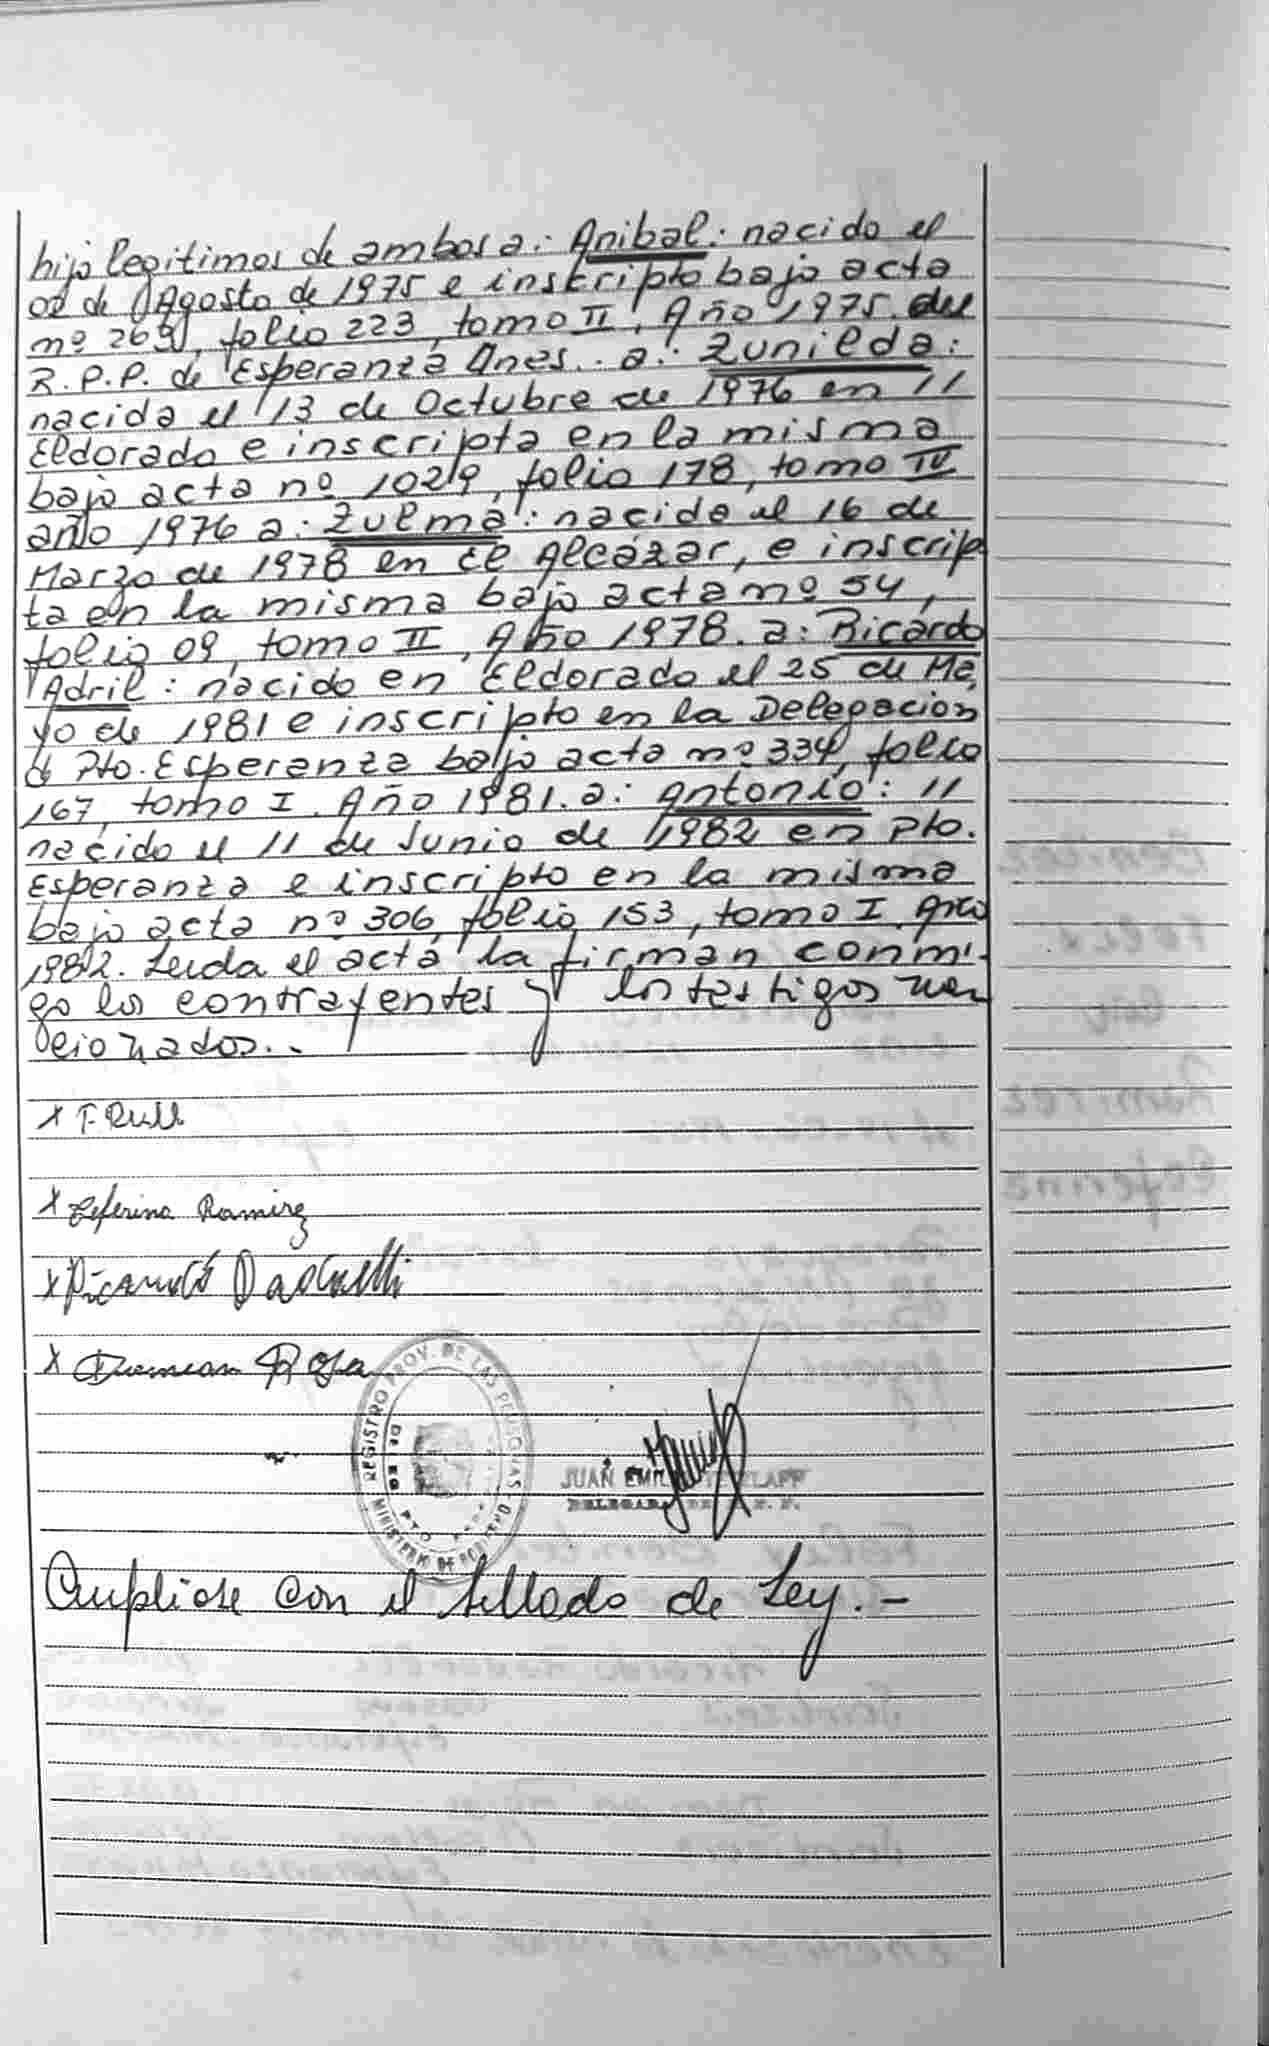 hijo legitimos de ambos a.: Anibal: nacido el
02 de Agosto de 1975 e inscripto bajo acta
nº folio 223, tomo II, Año 1975. del
R.P.P. de Esperanza Mnes.. a.: Zunilda:
nacida el 13 de Octubre de 1976 en 11
Eldorado e inscripta en la misma
bajo acta nº 1029, folio 178, tomo IV
año 1976 a: Zulma: nacida el 16 de
Marzo de 1978 en El Alcázar, e inscrip
ta en la misma bajo acta nº 54,
folio 09, tomo II, Año 1978. a: Ricardo
Adril: nacido en Eldorado el 25 de Ma,
yo de 1981 e inscripto en la Delegacion
d Pto. Esperanza bajo acta nº 334, folio
167, tomo I. Año 1981. a: Antonio: 11
nacido el 11 de Junio de 1982 en Pto.
Esperanza e inscripto en la misma
bajo acta nº 306, folio 153, tomo I. Año
1982. Leida el acta la firman conmi-
go los contrayentes y los testigos men
cionados..
x F. Rull
x Zeferina Ramirez
x Ricardo
x Damian Roja
REGISTRO PROV. DE LAS PERSONAS
MINISTERIO DE GOBIERNO
PTO
JUAN
Cumpliose con el Sellado de Ley.-